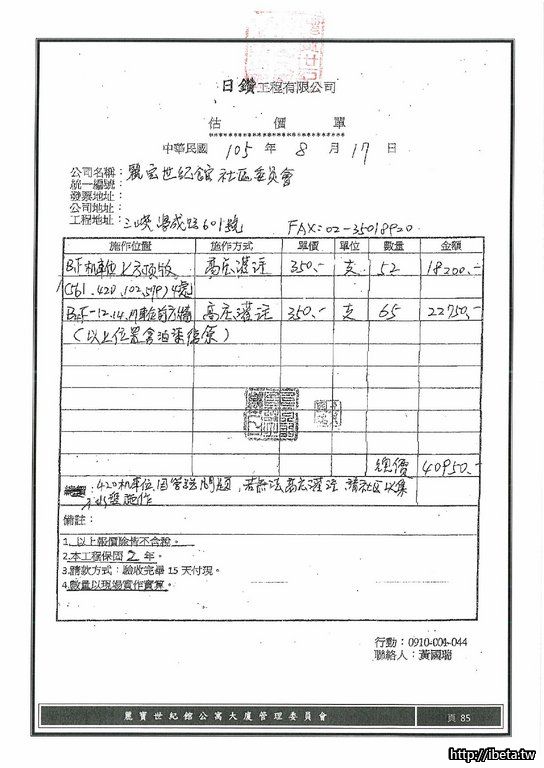 日鑽工程有限公司
估 價 單
中華民國 105 年 8 月 17 日
公司名稱：麗宝世紀館社區委員會
統一編號：
發票地址：
公司地址：
工程地址：三峽 成路601號 FAX:02-35018920
施作位置 施作方式 單價 單位 數量 金額
B1F机車位上方頂版 高压灌注 350.- 支 52 18200.-
(561.420.102.579)4處
12.14 車位前方牆 高压灌注 350.- 支 65 22750.-
(以上位置含泊漆復原)
總價 40950.-
420机車位因管路問題，若無法高压灌注，請社區以集
水盤施作
備註：
1、以上報價除皆不含稅。
2.本工程保固2年。
3.請款方式：驗收完畢15天付現。
4.數量以現場實作實算。
行動：0910-001-044
聯絡人：黃國瑞
麗寶世紀館公寓大廈管理委員會 頁 85
http://ibeta.tw